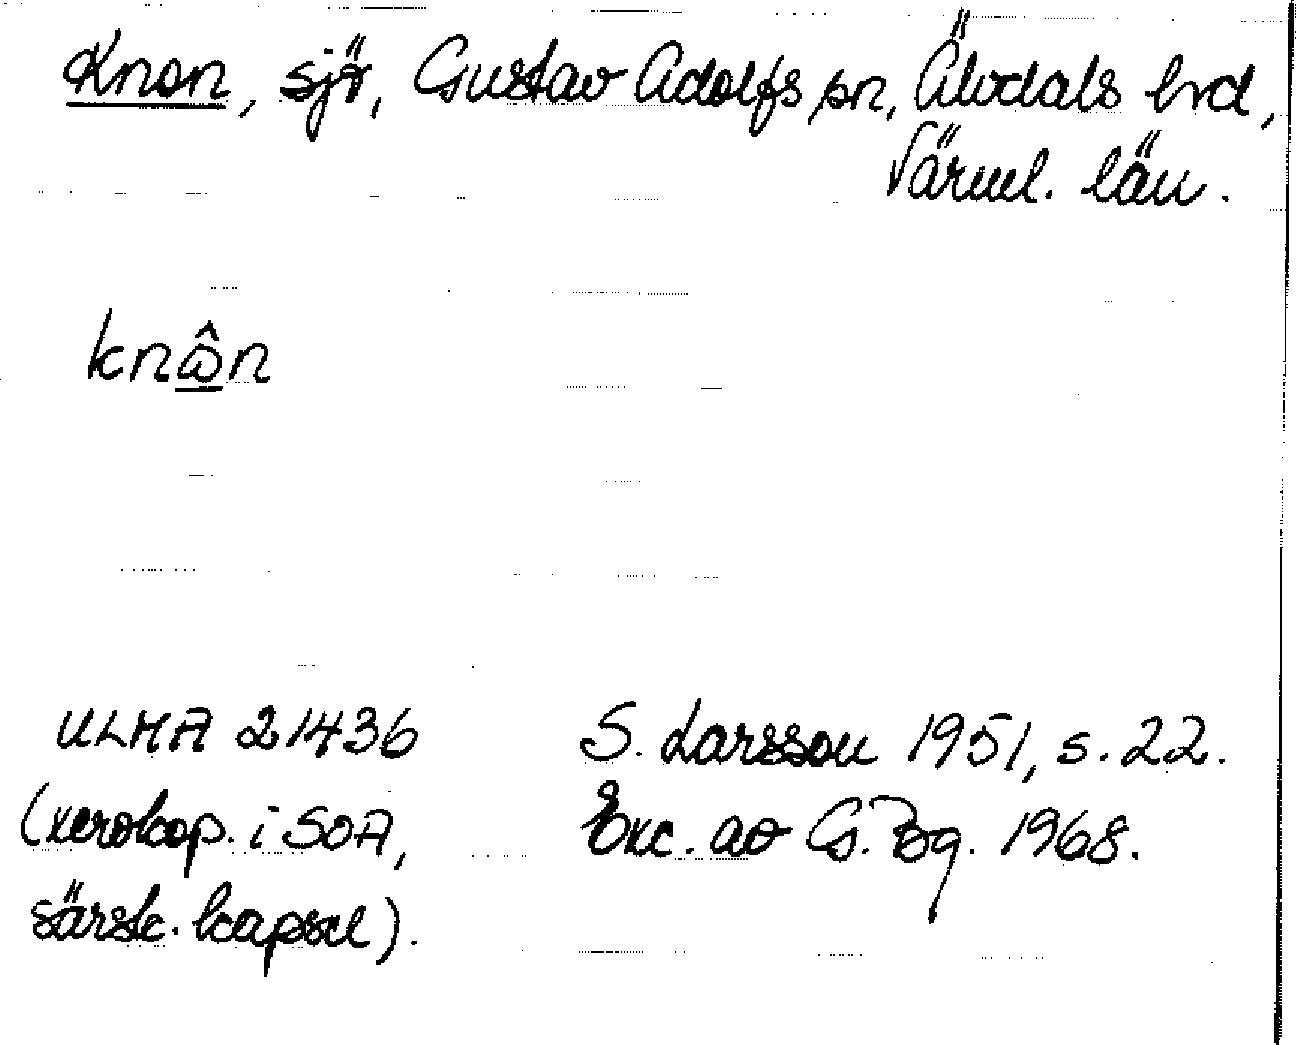 Knon, sjö, Gustav Adolfs sn, Älvdals hrd,
Värml. län.
knω̂n
ULMA 21436
S. Larsson 1951, s. 22.
(xerokop. i SOA,
Exc. av G. Bg. 1968.
särsk. kapsel).